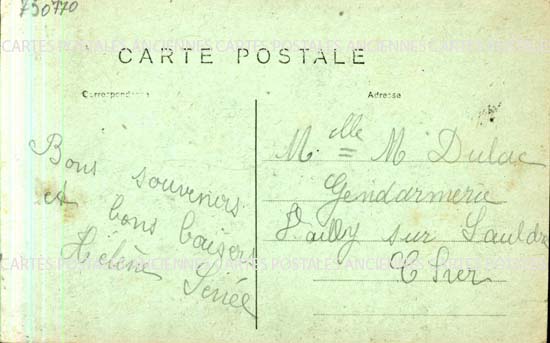 750770
CARTES POSTALES ANCIENNES CARTES POSTALES ANCIENNES CARTES POSTALES
CARTE POSTALE
Correspondance
Adresse
Bons souvenirs
et bons baisers
Hélène
Mlle M Dulac
Gendarmerie
Vailly sur Sauldre
Cher
CARTES POSTALES ANCIENNES CARTES POSTALES ANCIENNES CARTES POSTALES